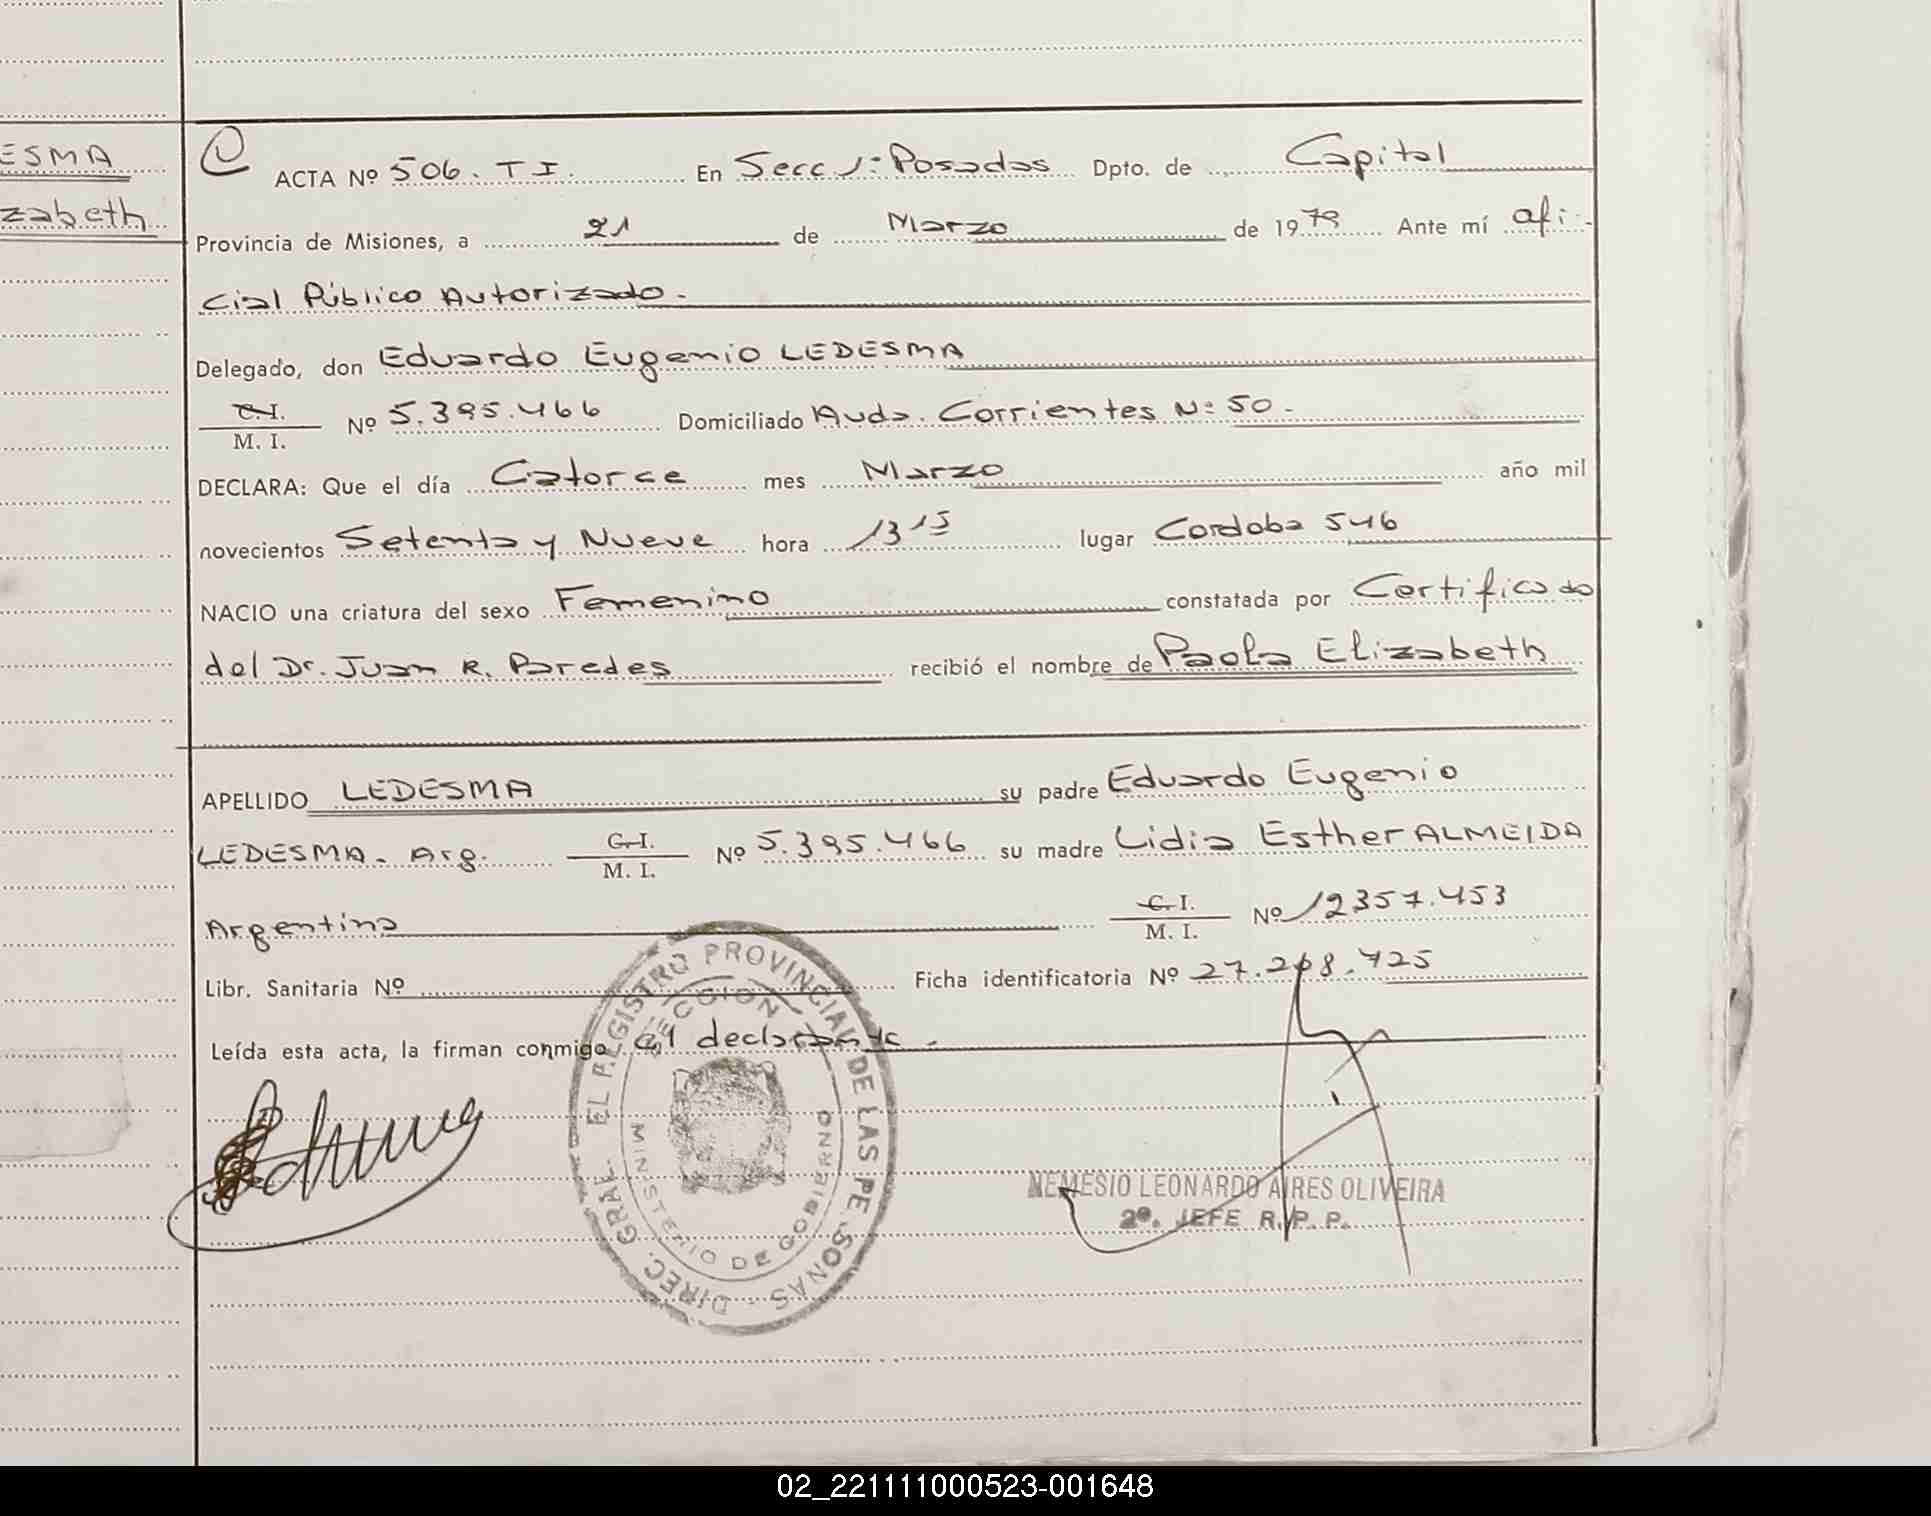 ESMA
zabeth
ACTA Nº 506. T I. En Secc 1: Posadas Dpto. de Capital
Provincia de Misiones, a 21 de Marzo de 1979 Ante mí ofi-
cial Público Autorizado.
Delegado, don Eduardo Eugenio LEDESMA
C.I. M. I. Nº 5.395.466 Domiciliado Avda. Corrientes Nº 50.
DECLARA: Que el día Catorce mes Marzo año mil
novecientos Setenta y Nueve hora 13 15 lugar Cordoba 546
NACIO una criatura del sexo Femenino constatada por Certificado
del Dr. Juan R. Paredes recibió el nombre de Paola Elizabeth
APELLIDO LEDESMA su padre Eduardo Eugenio
LEDESMA. Arg. C.I. M. I. Nº 5.395.466 su madre Lidia Esther ALMEIDA
Argentina C. I. M. I. Nº 12357.453
Libr. Sanitaria Nº Ficha identificatoria Nº 27.208.725
Leída esta acta, la firman conmigo el declarante.
DIREC. GRAL. EL REGISTRO PROVINCIAL DE LAS PERSONAS
SECCION
MINISTERIO DE GOBIERNO
NEMESIO LEONARDO AIRES OLIVEIRA
2º. JEFE R. P. P.
02_221111000523-001648